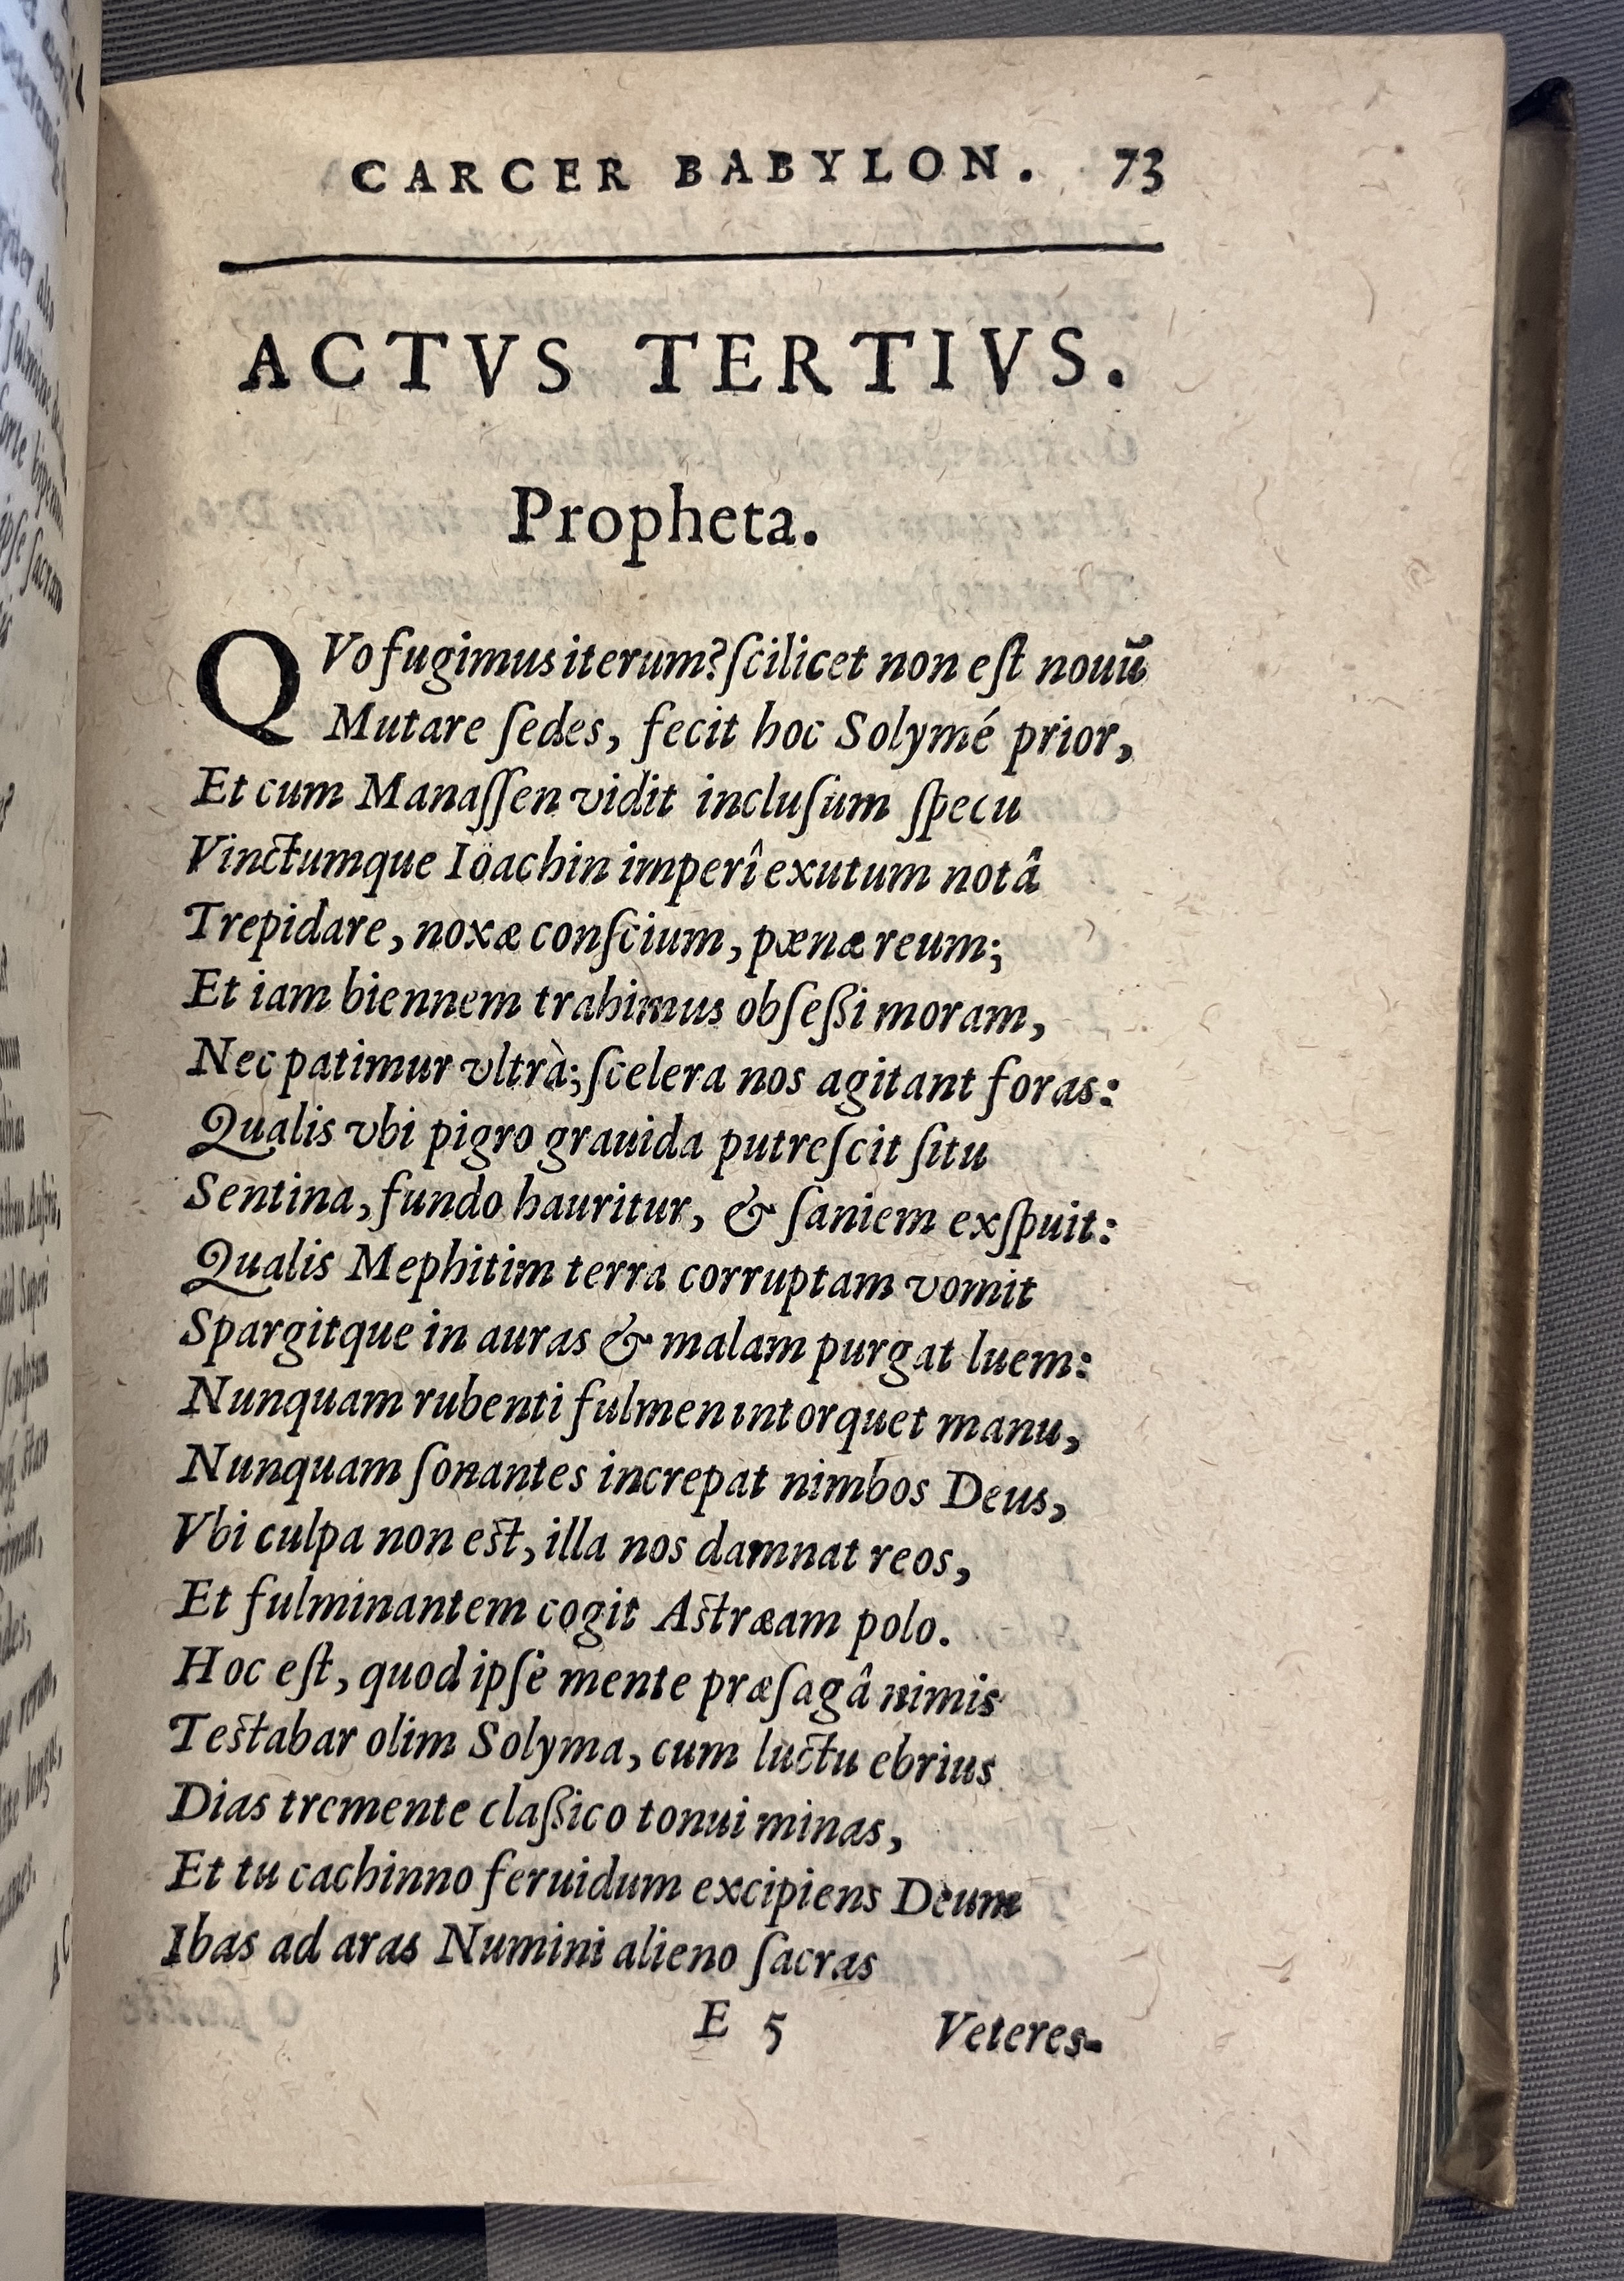 CARCER BABYLON. 73
ACTVS TERTIVS.
Propheta.
QVo fugimus iterum? ſcilicet non eſt nouū
Mutare ſedes, fecit hoc Solymé prior,
Et cum Manaſſen vidit incluſum ſpecu
Vinctumque Ioachin imperî exutum notâ
Trepidare, noxæ conſcium, pœnæ reum;
Et iam biennem trahimus obſeßi moram,
Nec patimur vltrà; ſcelera nos agitant foras:
Qualis vbi pigro grauida putreſcit ſitu
Sentina, fundo hauritur, & ſaniem exſpuit:
Qualis Mephitim terra corruptam vomit
Spargitque in auras & malam purgat luem:
Nunquam rubenti fulmen intorquet manu,
Nunquam ſonantes increpat nimbos Deus,
Vbi culpa non eſt, illa nos damnat reos,
Et fulminantem cogit Aſtræam polo.
Hoc eſt, quod ipſe mente præſagâ nimis
Teſtabar olim Solyma, cum luctu ebrius
Dias tremente claßico tonui minas,
Et tu cachinno feruidum excipiens Deum
Ibas ad aras Numini alieno ſacras
E 5 Veteres-